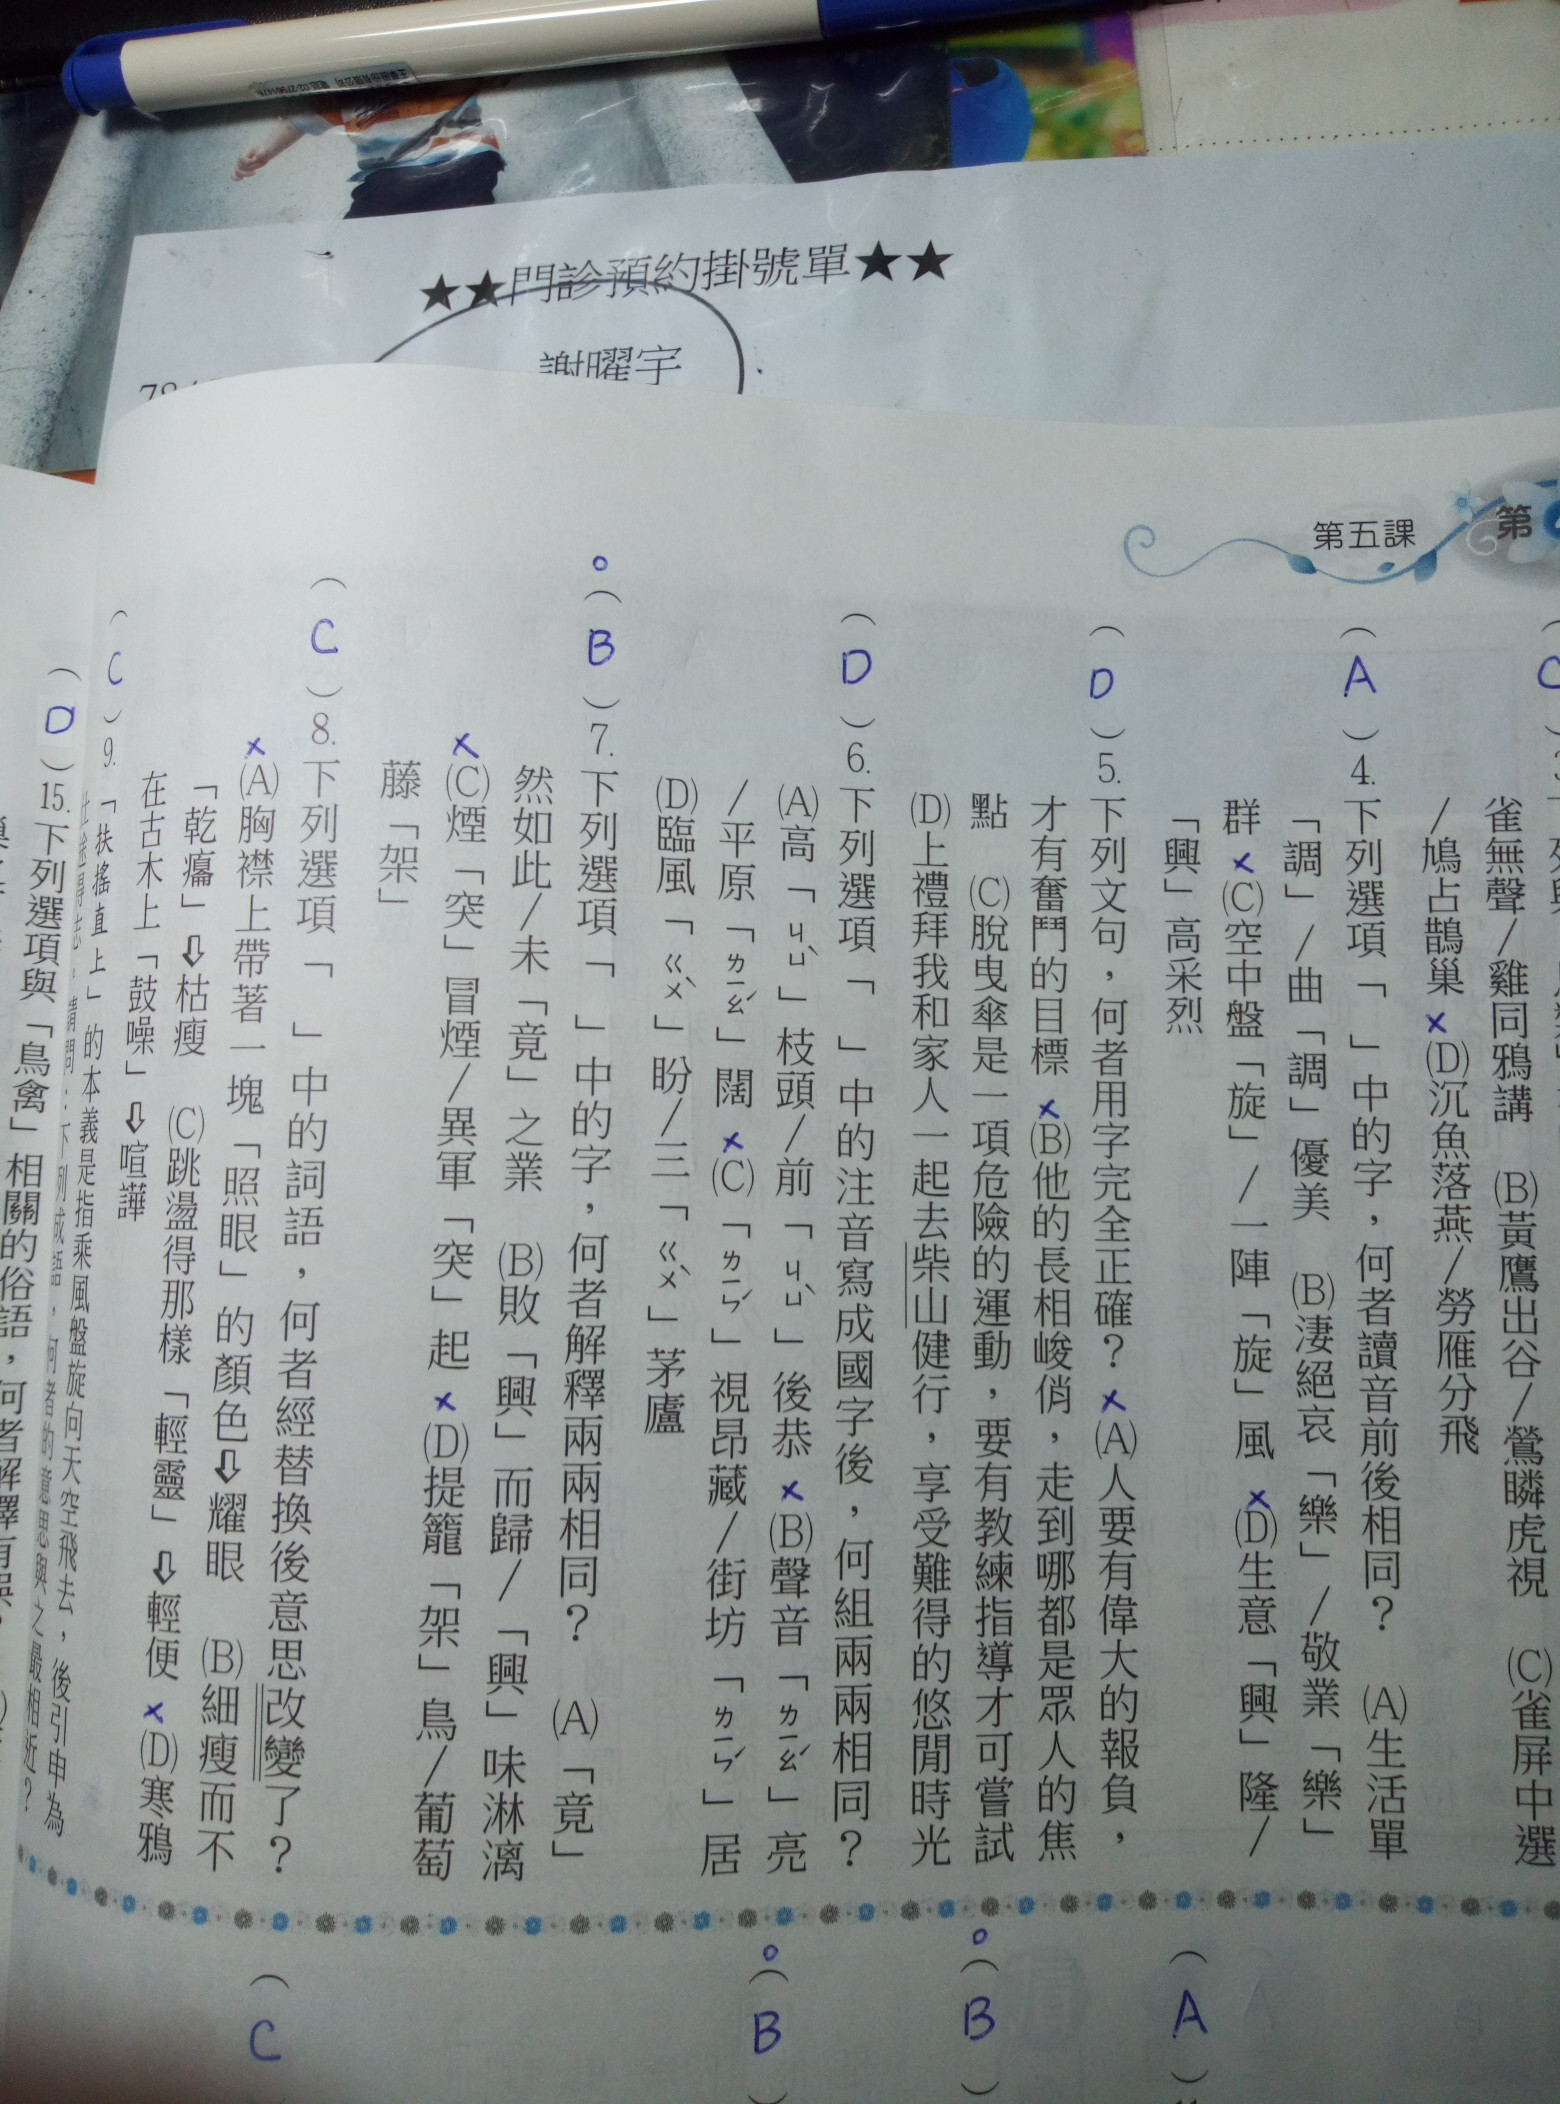 ★★門診預約掛號單★★
謝曜宇
第五課
第
雀無聲/雞同鴉講 (B)黃鷹出谷/鶯瞵虎視 (C)雀屏中選
/鳩占鵲巢 ×(D)沉魚落燕/勞雁分飛
( A ) 4.下列選項「 」中的字,何者讀音前後相同? (A)生活單
「調」/曲「調」優美 (B)淒絕哀「樂」/敬業「樂」
群 ×(C)空中盤「旋」/一陣「旋」風 ×(D)生意「興」隆/
「興」高采烈
( D ) 5.下列文句,何者用字完全正確? ×(A)人要有偉大的報負,
才有奮鬥的目標 ×(B)他的長相峻俏,走到哪都是眾人的焦
點 (C)脫曳傘是一項危險的運動,要有教練指導才可嘗試
(D)上禮拜我和家人一起去柴山健行,享受難得的悠閒時光
( D ) 6.下列選項「 」中的注音寫成國字後,何組兩兩相同?
(A)高「ㄐㄩˋ」枝頭/前「ㄐㄩˋ」後恭 ×(B)聲音「ㄌㄧㄠˊ」亮
/平原「ㄌㄧㄠˊ」闊 ×(C)「ㄌㄧㄣˊ」視昂藏/街坊「ㄌㄧㄣˊ」居
(D)臨風「ㄍㄨˋ」盼/三「ㄍㄨˋ」茅廬
○( B ) 7.下列選項「 」中的字,何者解釋兩兩相同? (A)「竟」
然如此/未「竟」之業 (B)敗「興」而歸/「興」味淋漓
×(C)煙「突」冒煙/異軍「突」起 ×(D)提籠「架」鳥/葡萄
藤「架」
( C ) 8.下列選項「 」中的詞語,何者經替換後意思改變了?
×(A)胸襟上帶著一塊「照眼」的顏色⇨耀眼 (B)細瘦而不
「乾癟」⇨枯瘦 (C)跳盪得那樣「輕靈」⇨輕便 ×(D)寒鴉
在古木上「鼓噪」⇨喧譁
( C ) 9.「扶搖直上」的本義是指乘風盤旋向天空飛去,後引申為
仕途得志。請問:下列成語,何者的意思與之最相近?
( D ) 15.下列選項與「鳥禽」相關的俗語,何者解釋有誤?
( A )
○( B )
○( B )
( C